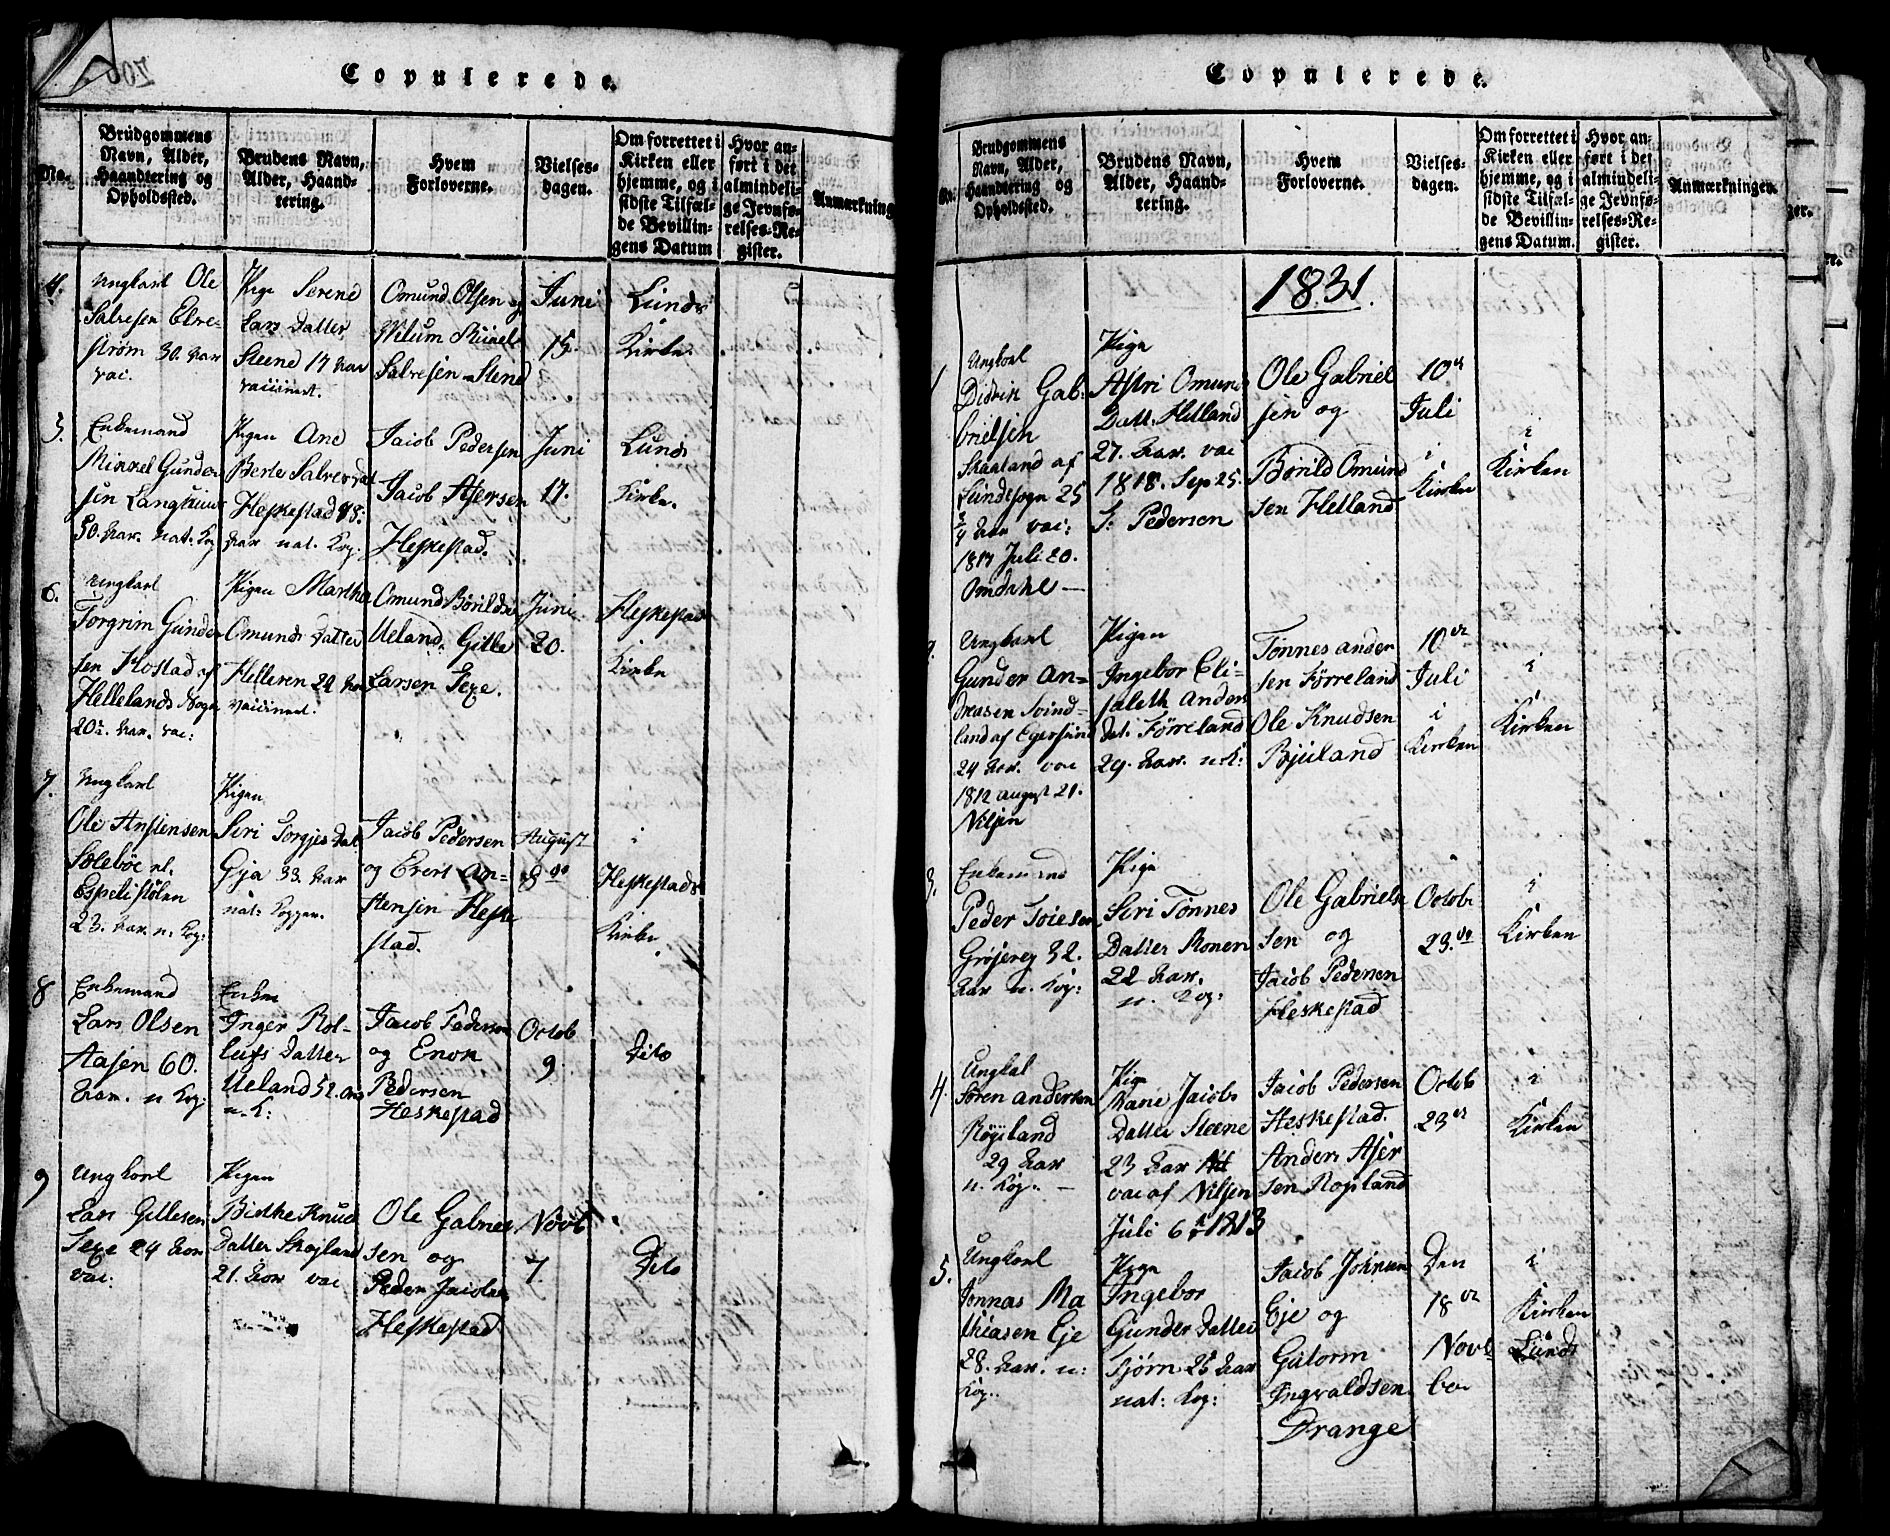 Copulerede.
No.
Brudgommens
Navn, Alder,
Haandtering og
Opholdssted.
Brudens Navn,
Alder, Haand-
tering.
Hvem
Forloverne.
Vielses-
dagen.
Om forrettet i
Kirken eller
hjemme, og i
sidste Tilfæl-
de Bevillin-
gens Datum
Hvor an-
ført i det
almindeli-
ge Jevnfø-
relses-Re-
gister.
Anmærkning
4.
Ungkarl Ole
Salvesen Elve-
strøm 30. Aar
vac.
Pige Serene
Lars Datter
Steene 17 Aar
vaccineret.
Omund Olsen og
Salvesen Steene
Juni
15.
Lunds
Kirke.
5.
Enkemand
Mikkel Gunder
sen
50. Aar. nat. Kop
Pigen Ane
Berte Salvesdat
Heskestad 48.
Aar nat. Kop:
Jacob Pedersen
Jacob Asersen
Heskestad.
Juni
17.
Lunds
Kirke.
6.
Ungkarl
Torgrim Gunder
sen Hostad af
Hellelands Sogn
20. Aar. vac:
Pigen Martha
Omunds Datter
Helleren 24 Aar
vaccineret.
Omund Børildsen
Ueland. Gitle
Larsen Sexe.
Juni
20.
Heskestad
Kirke
7.
Ungkarl
Ole Anstensen
Solebøe
Espetistølen
23. Aar. n. Kop:
Pigen
Siri Torgjes Dat
Gya 33. Aar
nat: Kopper.
Jacob Pedersen
og Evert An-
stensen Heske
stad.
August
8de
i
Heskestads
Kirke
8
Enkemand
Lars Olsen
Aasen 60.
Aar. n Kop:
Enken
Inger Rol-
lufs Datter
Ueland 52. Aar
n. K:
Jacob Pedersen
og Enok
Pedersen
Heskestad
Octob
9
Dito
9
Ungkarl
Lars Gitlesen
Sexe 24 Aar
vac:
Pigen
Birthe Knud
Datter Skogland
21. Aar vac
Ole Gabriel
sen og
Peder Jacobsen
Heskestad
Novb
7.
Dito
Copulerede.
No.
Brudgommens
Navn, Alder,
Haandtering og
Opholdssted.
Brudens Navn,
Alder, Haand-
tering.
Hvem
Forloverne.
Vielses-
dagen.
Om forrettet i
Kirken eller
hjemme, og i
sidste Tilfæl-
de Bevillin-
gens Datum.
Hvor an-
ført i det
almindeli-
ge Jevnfø-
relses-Re-
gister.
Anmærkningen
1831.
1
Ungkarl
Didrik Gab-
brielsen
Skaaland af
Lundesogn 25
3/4 Aar vac:
1817 Juli 20.
Omdahl —
Pige
Astri Omunds
Datt. Helland
27. Aar. vac
1818. Sep 25.
S: Pedersen
Ole Gabriel
sen og
Børild Omund
sen Helland
10de
Juli
i
Kirken
i
Kirken
2.
Ungkarl
Gunder An-
dreasen Svind-
land af Egersund
24 Aar. vac
1812 august 21.
Nilsen
Pigen
Ingebor Eli-
sabeth Anders
dat. Førreland
29. Aar. n. K:
Tønnes ander
sen Førreland
Ole Knudsen
Bjuland
10de
Juli
i
Kirken
i
Kirken
3.
Enkemand
Peder Toiesen
Grøsevey 32.
Aar n. Kop:
Pige
Siri Tønnes
Datter Monen
22 Aar.
n. Kop:
Ole Gabriel
sen og
Jacob Pedersen
Heskestad
Octobr
23.de
i
Kirken
4.
Ungkal
Søren andersen
Røysland
29 Aar
n. Kop. —
Pige
Mane Jacobs
Datter Steene
23 Aar
vac af Nilsen
Juli 6te 1813
Jacob Pedersen
Heskestad.
Anders Aser
sen Rosland
Octob
23de
i
Kirken
5.
Ungkarl
Jonnas Ma
thiasen Eje
28. Aar. n:
Kop.
Pige
Ingebor
Gunder Datter
Tjørn 25 Aar
nat: Kop:
Jacob Johnsen
Eje og
Gutorm
Ingvaldsen
Drange
Den
18de
Novb
ber
i
Kirken
Lunds